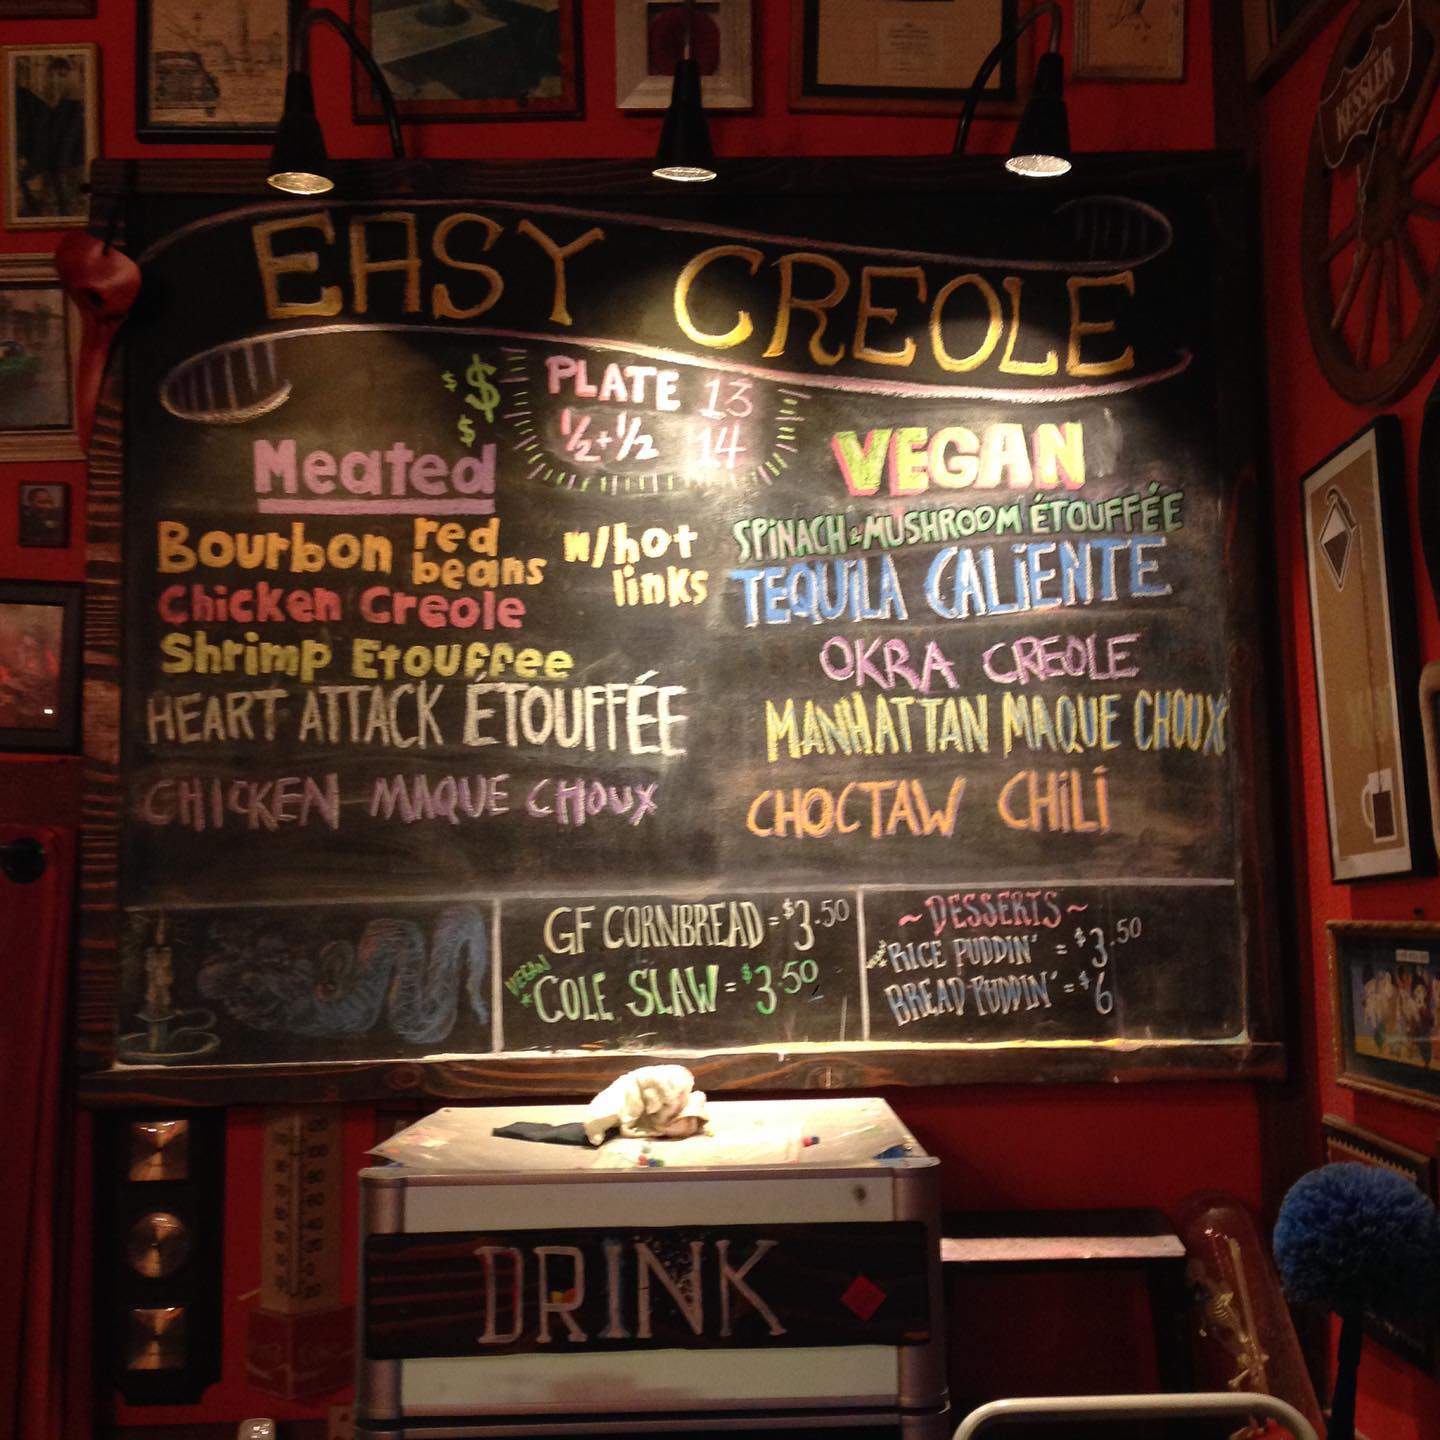 KESSLER
EASY CREOLE
$ $ $
PLATE 13
½+½ 14
Meated
Bourbon red beans w/hot links
Chicken Creole
Shrimp Etouffee
HEART ATTACK ÉTOUFFÉE
CHICKEN MAQUE CHOUX
VEGAN
SPINACH & MUSHROOM ÉTOUFFÉE
TEQUILA CALIENTE
OKRA CREOLE
MANHATTAN MAQUE CHOUX
CHOCTAW CHILI
GF CORNBREAD = $3.50
VEGAN
* COLE SLAW = $3.50
~DESSERTS~
RICE PUDDIN' = $3.50
BREAD PUDDIN' = $6
DRINK